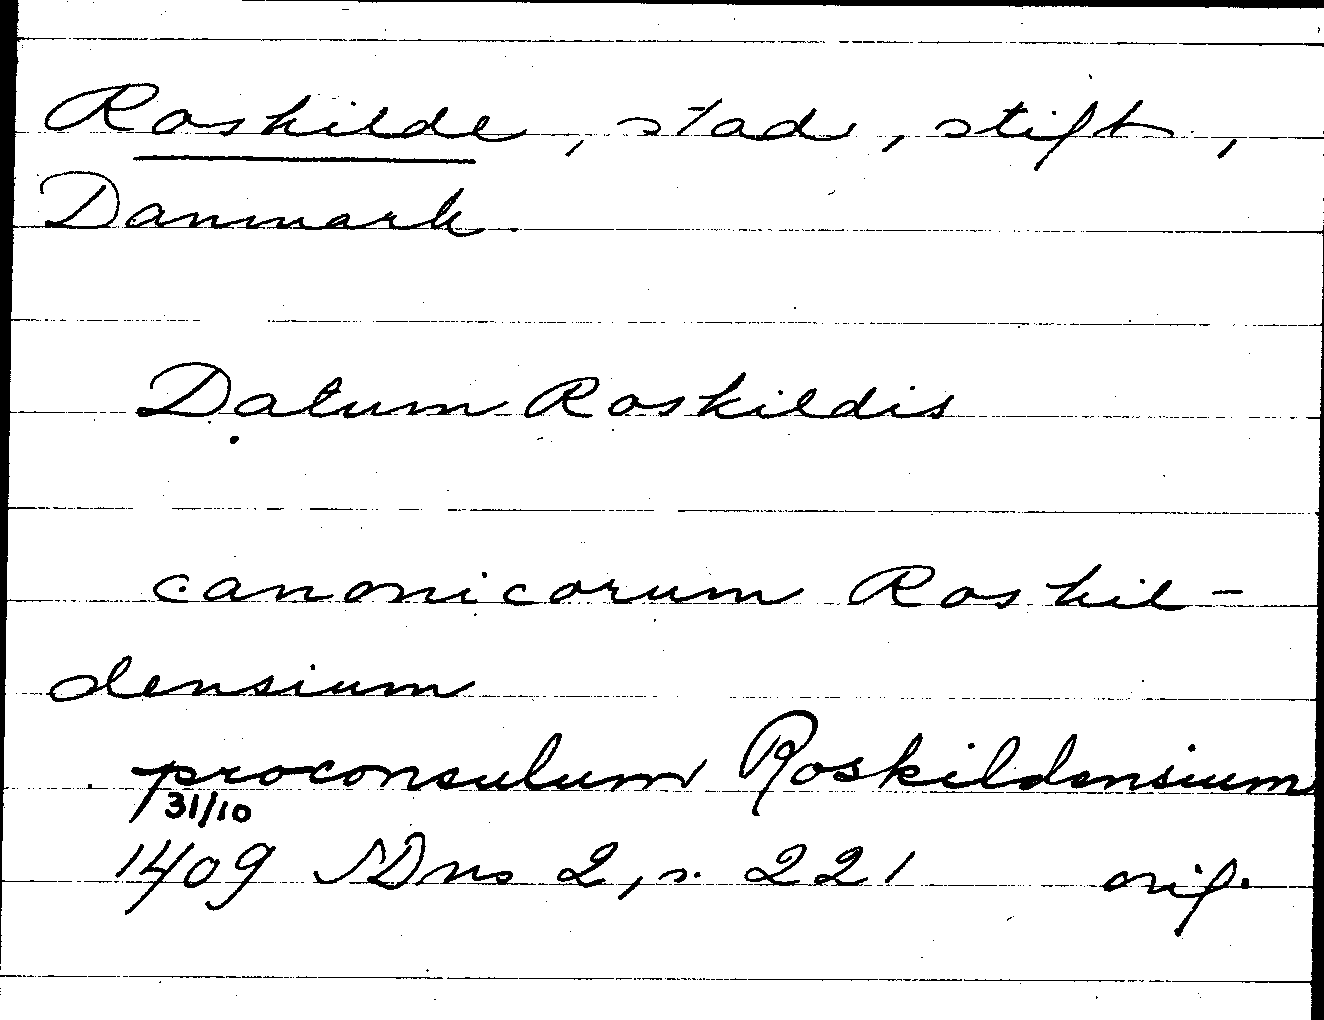 Roskilde, stad, stift,
Danmark.
Datum Roskildis
canonicorum Roskil-
densium
proconsulum Roskildensium
31/10
1409 SDns 2, s. 221 orig.